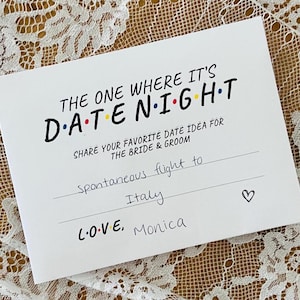 THE ONE WHERE IT'S
D•A•T•E N•I•G•H•T
SHARE YOUR FAVORITE DATE IDEA FOR
THE BRIDE & GROOM
spontaneous flight to
Italy
L•O•V•E, Monica